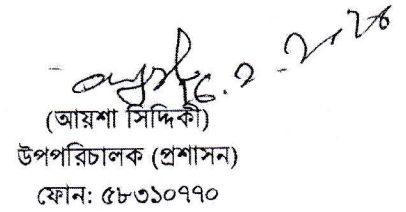 (আয়শা সিদ্দিকী)
উপপরিচালক (প্রশাসন)
ফোন: ৫৮৩১০৭৭০